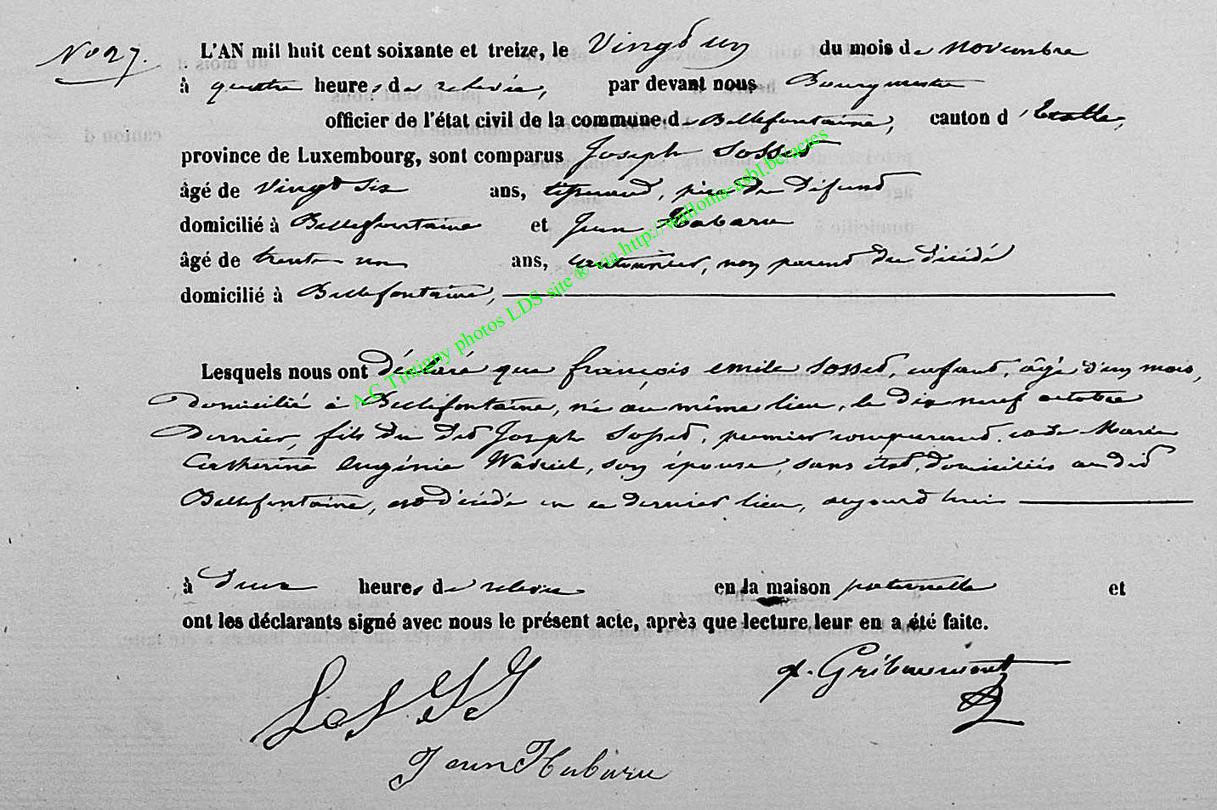 No 27.
L'AN mil huit cent soixante et treize, le Vingt un du mois de novembre
à quatre heures de relevée, par devant nous Bourgmestre
officier de l'état civil de la commune de Bellefontaine, canton d'Etalle,
province de Luxembourg, sont comparus Joseph Sosset
âgé de Vingt six ans, tisserand, père du défunt
domicilié à Bellefontaine et Jean Habaru
âgé de trente un ans, cantonnier, non parent du décédé
domicilié à Bellefontaine,
A C Tintigny photos LDS site ® via http://wallonia-asbl.be/actes
Lesquels nous ont déclaré que françois emile Sosset, enfant, âgé d'un mois,
Domicilié à Bellefontaine, né au même lieu, le dix neuf octobre
Dernier, fils du dit Joseph Sosset, premier comparant, et de Marie
Catherine Eugénie, son épouse, sans état, domiciliés au dit
Bellefontaine, est décédé en ce dernier lieu, aujourd'hui
à Deux heures de relevée en la maison paternelle et
ont les déclarants signé avec nous le présent acte, après que lecture leur en a été faite.
Gribaumont
Jean Habaru